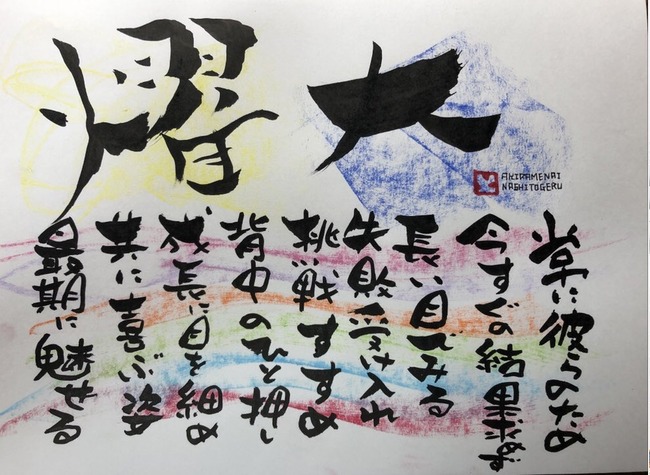 大燿
AKIRAMENAI
NASHITOGERU
常に彼らのため
今すぐの結果求めず
長い目でみる
失敗受け入れ
挑戦すすめ
背中のひと押し
成長に目を細め
共に喜ぶ姿
最期に魅せる